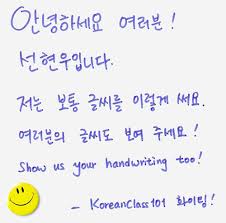 안녕하세요 여러분!
선현우입니다.
저는 보통 글씨를 이렇게 써요.
여러분의 글씨도 보여 주세요!
Show us your handwriting too!
- KoreanClass101 화이팅!